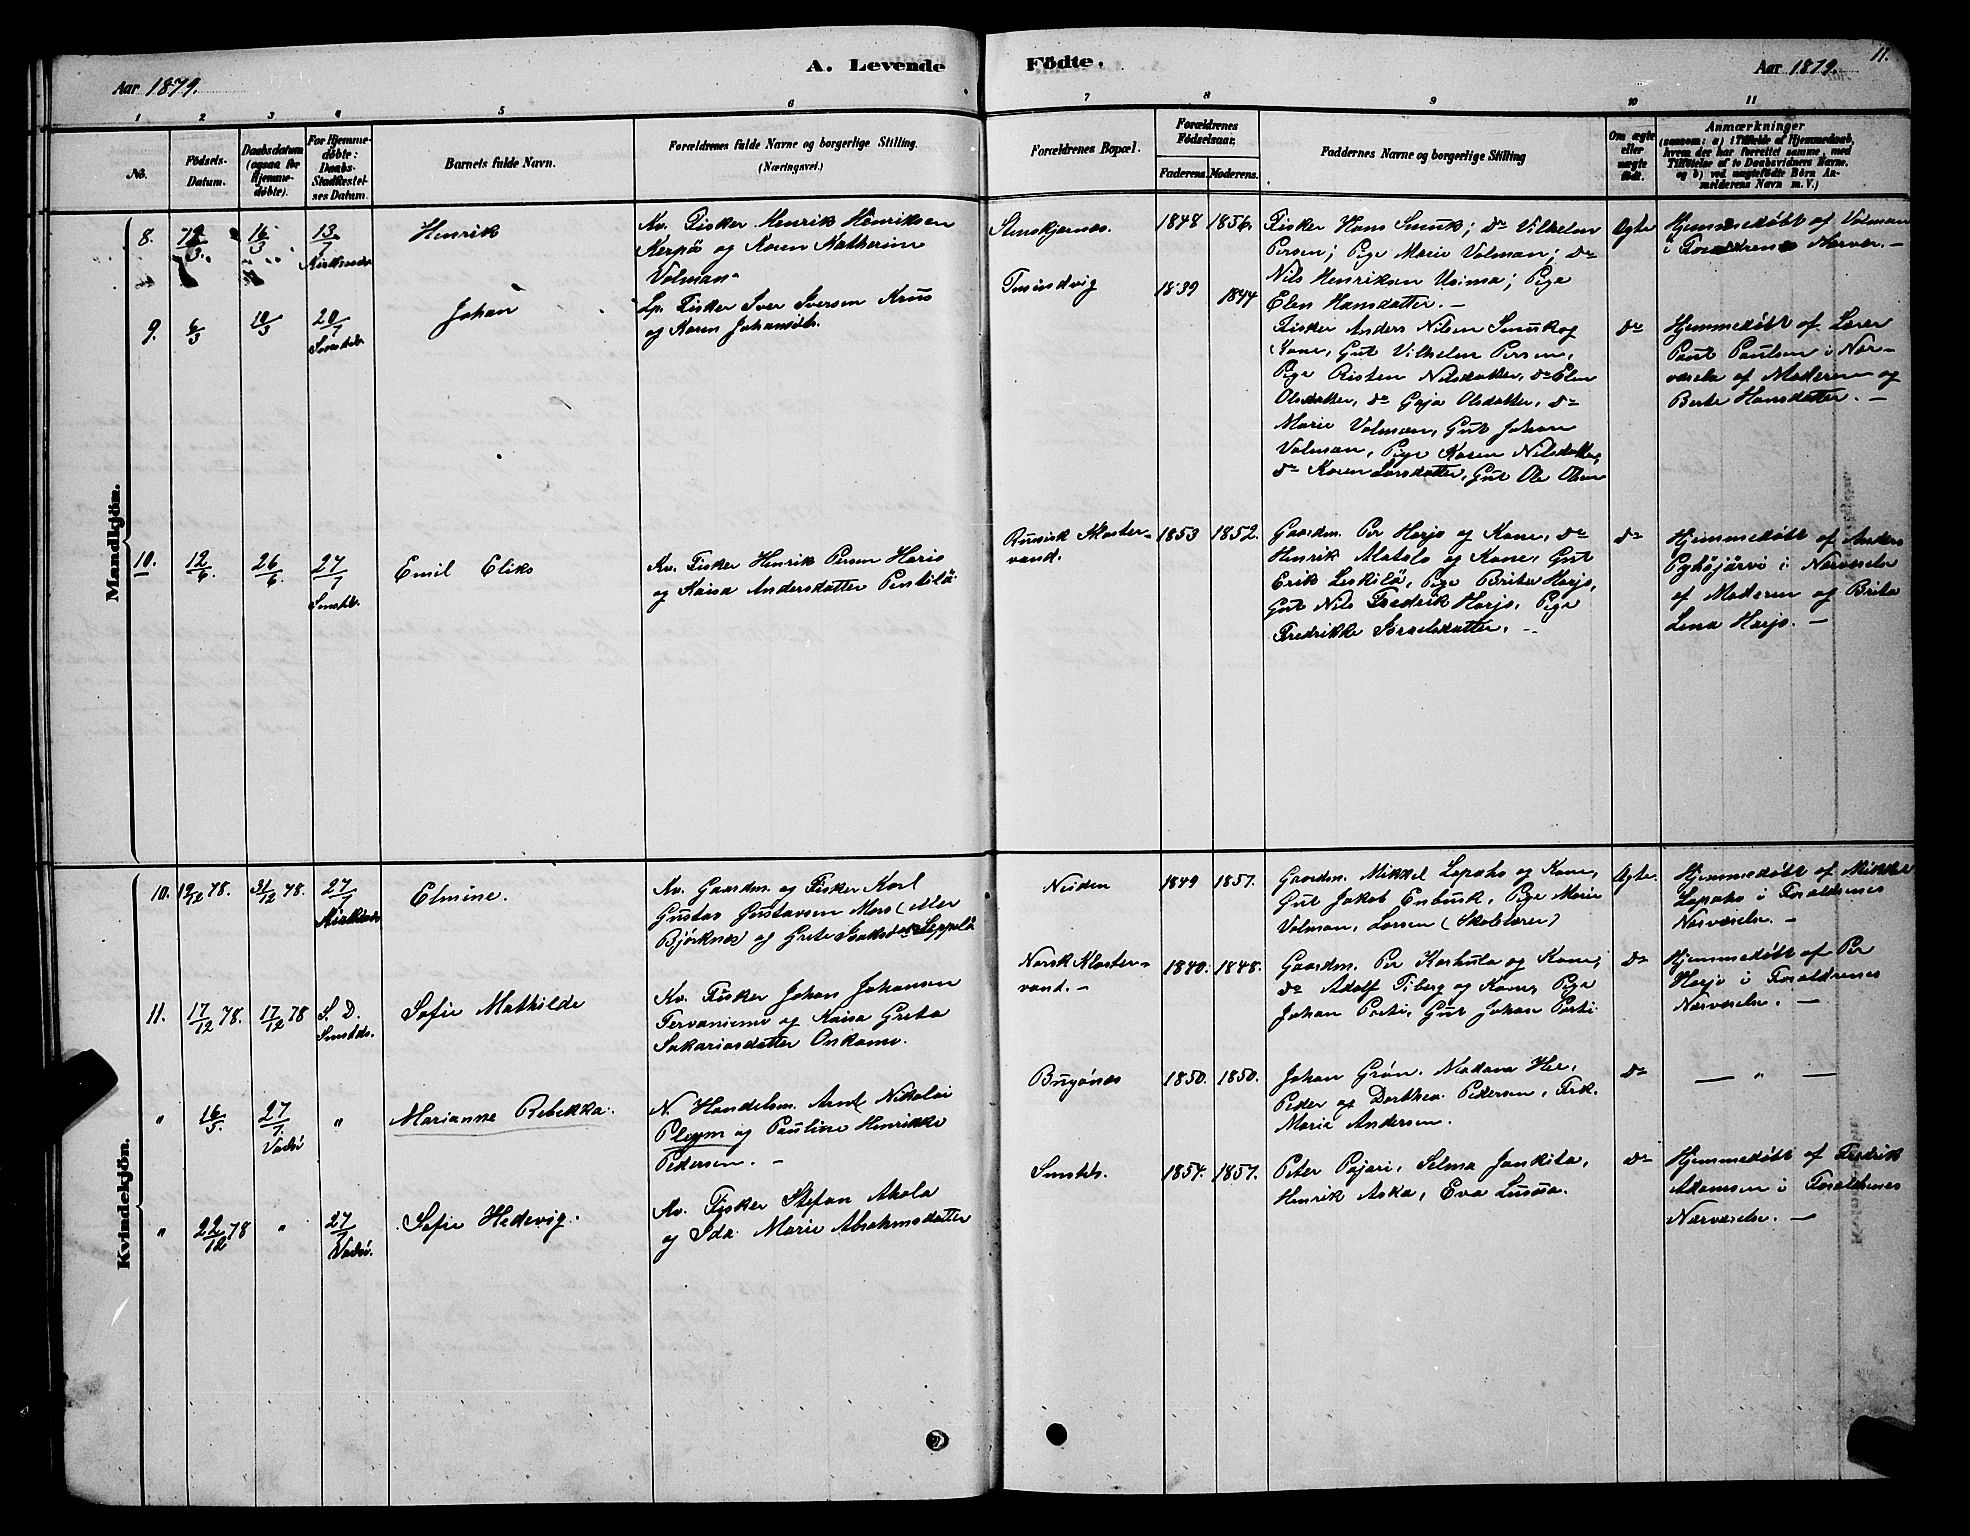 Aar 1879.
A. Levende
Födte.
Aar 1879.
11.
1 2 3 4 5 6 7 8 9 10 11
No.
Födsels-
Datum.
Daabsdatum
(ogsaa for
Hjemme-
døbte).
For Hjemme-
døbte:
Daabs-
Stadfæstel-
ses Datum.
Barnets fulde Navn.
Forældrenes fulde Navne og borgerlige Stilling
(Næringsvei.)
Forældrenes Bopæl.
Forældrenes
Fødselsaar.
Faderens. Moderens.
Faddernes Navne og borgerlige Stilling
Om ægte
eller
uægte
født.
Anmærkninger
(saasom: a) i Tilfælde af Hjemmedaab,
hvem der har forrettet samme, med
Tilføielse af to Daabsvidners Navne,
og b) ved uægtefødte Børn An-
melderens Navn m. V.)
Mandkjön.
8.
16/3
13/7
Henrik
Kv. Fisker Henrik Henriksen
Kerpö og Karen Katherine
Volman
Stenskjærnes.
1848 1856.
Fisker Hans Smuk; do Vilhelm
Persen; Pige Marie Volman; do
Nils Henriksen Usima; Pige
Elen Hansdatter. —
Ægte
Hjemmedöbt af Volman
i Forældrenes Nærvær. —
9. 6/3 10/3 20/7
Johan
Lp. Fisker Iver Iversen Krus
og Karen Johansdtr.
1839 1844
Fisker Anders Nilsen Smuk og
Kone, Gut Vilhelm Persen,
Pige Risten Nilsdatter, do Elen
Olsdatter, do Gaja Olsdatter, do
Marie Volman, Gut Johan
Volman, Pige Karen Nilsdatter,
do Karen Larsdatter, Gut Ole Olsen
do
Hjemmedöbt af Lærer
Paul Paulsen i Nær-
værelse af Moderen og
Berte Hansdatter. —
10. 12/6 26/6 27/7
Emil Eliks
Kv. Fisker Henrik Persen Harjo
og Kaisa Andersdatter Pentilö
Russisk Kloster-
vand.
1853 1852.
Gaardm. Per Harjo og Kone, do
Henrik Matalo og Kone, Gut
Erik Leskilö, Pige Brita Harjo,
Gut Nils Fredrik Harjo, Pige
Fredrikke Israelsdatter. —
do
Hjemmedöbt af Anders
Pyhöjärvi i Nærværelse
af Moderen og Brita
Lena Harjo. —
Kvindekjön.
10. 19/12 78. 31/12 78. 27/7
Elmine.
Kv. Gaardm. og Fisker Karl
Gustav Gustavsen Mars (eller
Björknes) og Grete Isaksdr Seppelä
Neiden
1849 1857.
Gaardm. Mikkel Lapaho og Kone,
Gut Jakob Enbusk, Pige Marie
Volman, Larsen (Skolelærer)
Ægte.
Hjemmedöbt af Mikkel
Lapaho i Forældrenes
Nærværelse. —
11. 17/12 78. 17/12 78 S. D.
Sofie Mathilde
Kv. Fisker Johan Johansen
Tervaniemi og Kaisa Greta
Sakariasdatter Onkamo.
Norsk Kloster-
vand. —
1840. 1848.
Gaardm. Per Karhula og Kone,
do Adolf Tiberg og Kone, Pige
Johan Porti, Gut Johan Porti
do
Hjemmedöbt af Per
Harjo i Forældrenes
Nærværelse. —
" 16/5. 27/7. Vadsö "
Marianne Rebekka.
N. Handelsm. Arnt Nikolai
Pleym og Pauline Henrikke
Pedersen. —
Bugönes
1850. 1850.
Johan Grön. Madam Hee,
Peder og Dorthea Pedersen, Frk.
Marie Andersen.
do
— " —
" 22/12 78 " 27/7 Vadsö.
Sofie Hedevig.
Kv. Fisker Stefan Ahola
og Ida Marie Abrahmsdatter
1854. 1857.
Peter Pajari, Selma Jankila,
Henrik Aska, Eva Lusua.
do
Hjemmedöbt af Fredrik
Adamsen i Forældrenes
Nærværelse. —